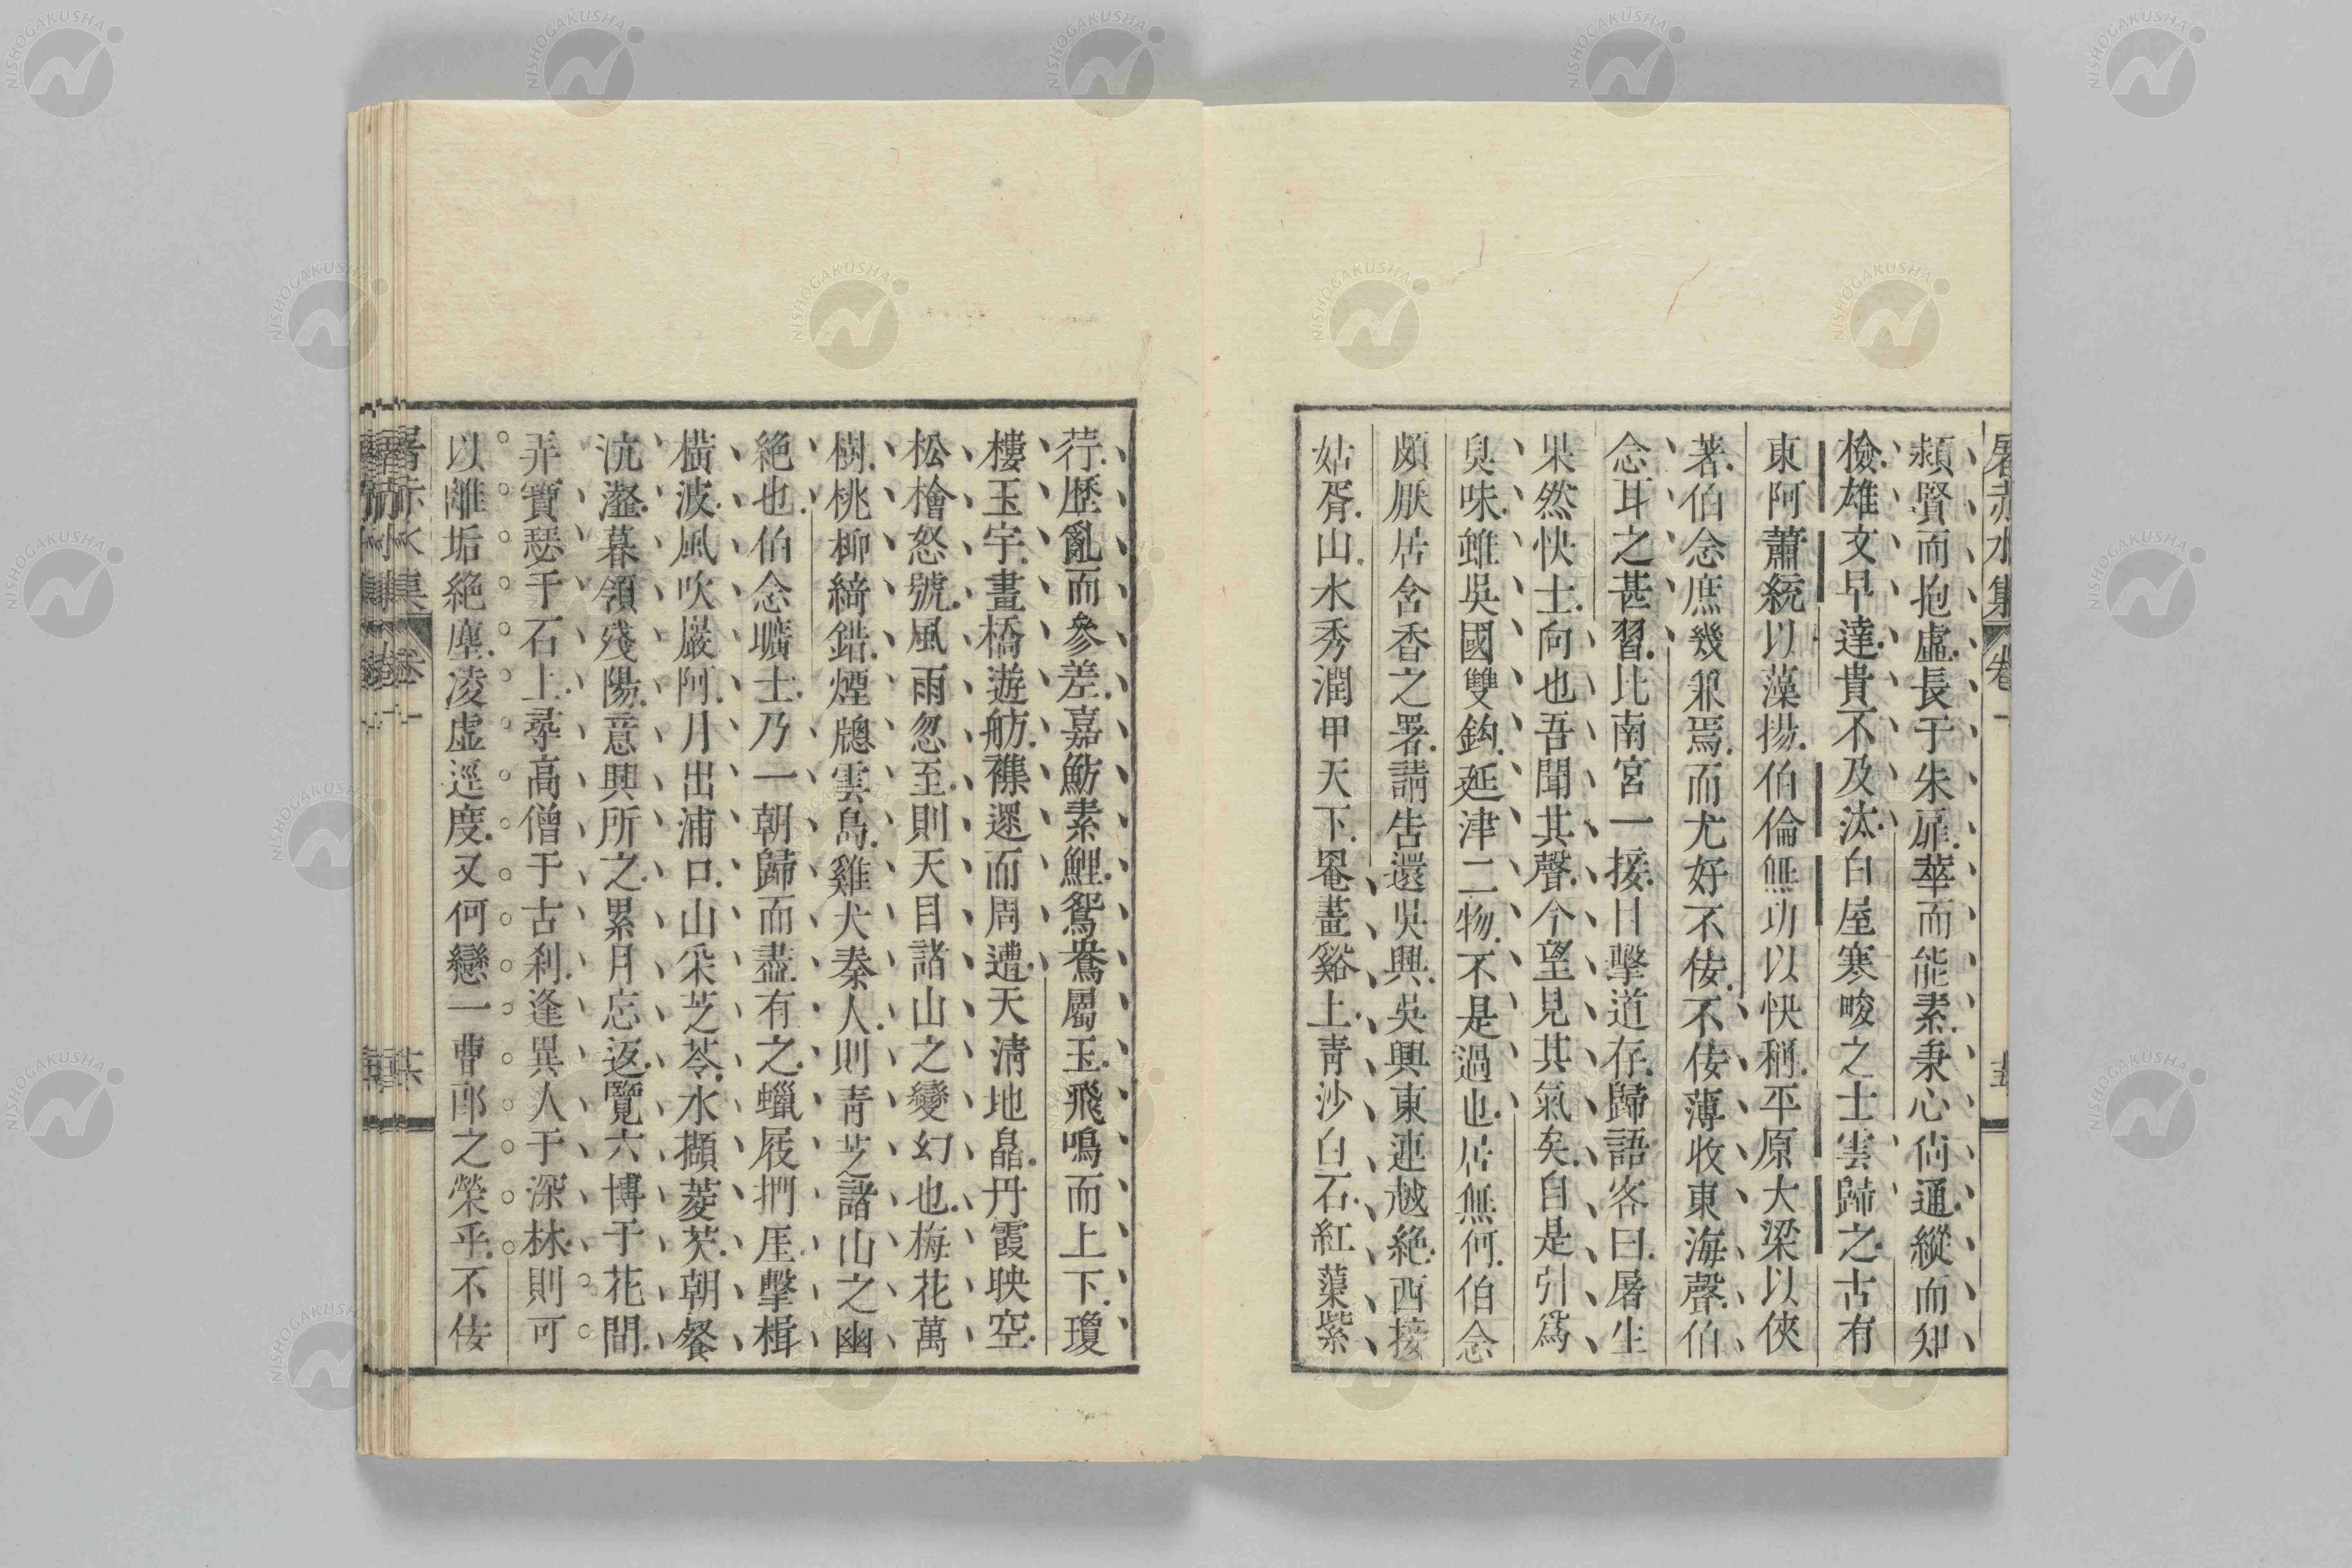 屠赤水集 卷一 十五
類賢而抱虛長于朱扉華而能素秉心倘通縱而知
檢雄文早達貴不及汰白屋寒畯之士雲歸之古有
東阿蕭統以藻揚伯倫無功以快稱平原大梁以俠
著伯念庶幾兼焉而尤好不佞不佞薄收東海聲伯
念耳之甚習比南宮一接目擊道存歸語客曰屠生
果然快士向也吾聞其聲今望見其氣矣自是引爲
臭味雖吳國雙鈎延津二物不是過也居無何伯念
頗厭居含香之署請告還吳興吳興東連越絕西接
姑胥山水秀潤甲天下罨畫谿上青沙白石紅蕖紫
荇歷亂而參差嘉魴素鯉鴛鴦屬玉飛鳴而上下瓊
樓玉宇畫橋遊舫襍還而周遭天清地皛丹霞映空
松檜怒號風雨忽至則天目諸山之變幻也梅花萬
樹桃柳綺錯煙牕雲島雞犬秦人則青芝諸山之幽
絕也伯念曠士乃一朝歸而盡有之蠟屐捫厓擊楫
橫波風吹巖阿月出浦口山采芝苓水擷菱芡朝餐
沆瀣暮領殘陽意興所之累月忘返覽六博于花間
弄寶瑟于石上尋高僧于古刹逢異人于深林則可
以離垢絕塵凌虛逕度又何戀一曹郎之榮乎不佞
屠赤水集 卷一 十六